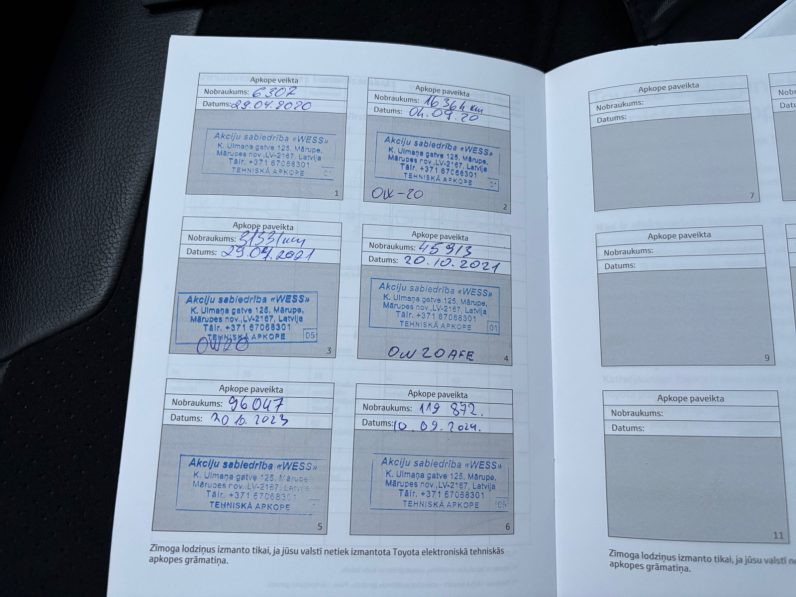 Apkope veikta
Nobraukums: 6307
Datums: 29.04.2020
Akciju sabiedrība «WESS»
K. Ulmaņa gatve 125, Mārupe,
Mārupes nov.,LV-2167, Latvija
Tālr. +371 67068301
TEHNISKĀ APKOPE 01
1
Apkope paveikta
Nobraukums: 16364 km
Datums: 04.09.20
Akciju sabiedrība «WESS»
K. Ulmaņa gatve 125, Mārupe,
Mārupes nov.,LV-2167, Latvija
Tālr. +371 67068301
TEHNISKĀ APKOPE 01
2
Apkope paveikta
Nobraukums: 31331 km
Datums: 29.04.2021
Akciju sabiedrība «WESS»
K. Ulmaņa gatve 125, Mārupe,
Mārupes nov.,LV-2167, Latvija
Tālr. +371 67068301
TEHNISKĀ APKOPE 05
OW20
3
Apkope paveikta
Nobraukums: 45913
Datums: 20.10.2021
Akciju sabiedrība «WESS»
K. Ulmaņa gatve 125, Mārupe,
Mārupes nov.,LV-2167, Latvija
Tālr. +371 67068301
TEHNISKĀ APKOPE 01
OW20AFE
4
Apkope paveikta
Nobraukums: 96047
Datums: 2023
Akciju sabiedrība «WESS»
K. Ulmaņa gatve 125, Mārupe,
Mārupes nov.,LV-2167, Latvija
Tālr. +371 67068301
TEHNISKĀ APKOPE
5
Apkope paveikta
Nobraukums: 119 872.
Datums: 10. 09. 2024.
Akciju sabiedrība «WESS»
K. Ulmaņa gatve 125, Mārupe,
Mārupes nov.,LV-2167, Latvija
Tālr. +371 67068301
TEHNISKĀ APKOPE 05
6
Zīmoga lodziņus izmanto tikai, ja jūsu valstī netiek izmantota Toyota elektroniskā tehniskās
apkopes grāmatiņa.
Apkope paveikta
Nobraukums:
Datums:
7
Apkope paveikta
Nobraukums:
Datums:
9
Apkope paveikta
Nobraukums:
Datums:
11
Zīmoga lodziņus izmanto tikai, ja jūsu valstī
apkopes grāmatiņa.